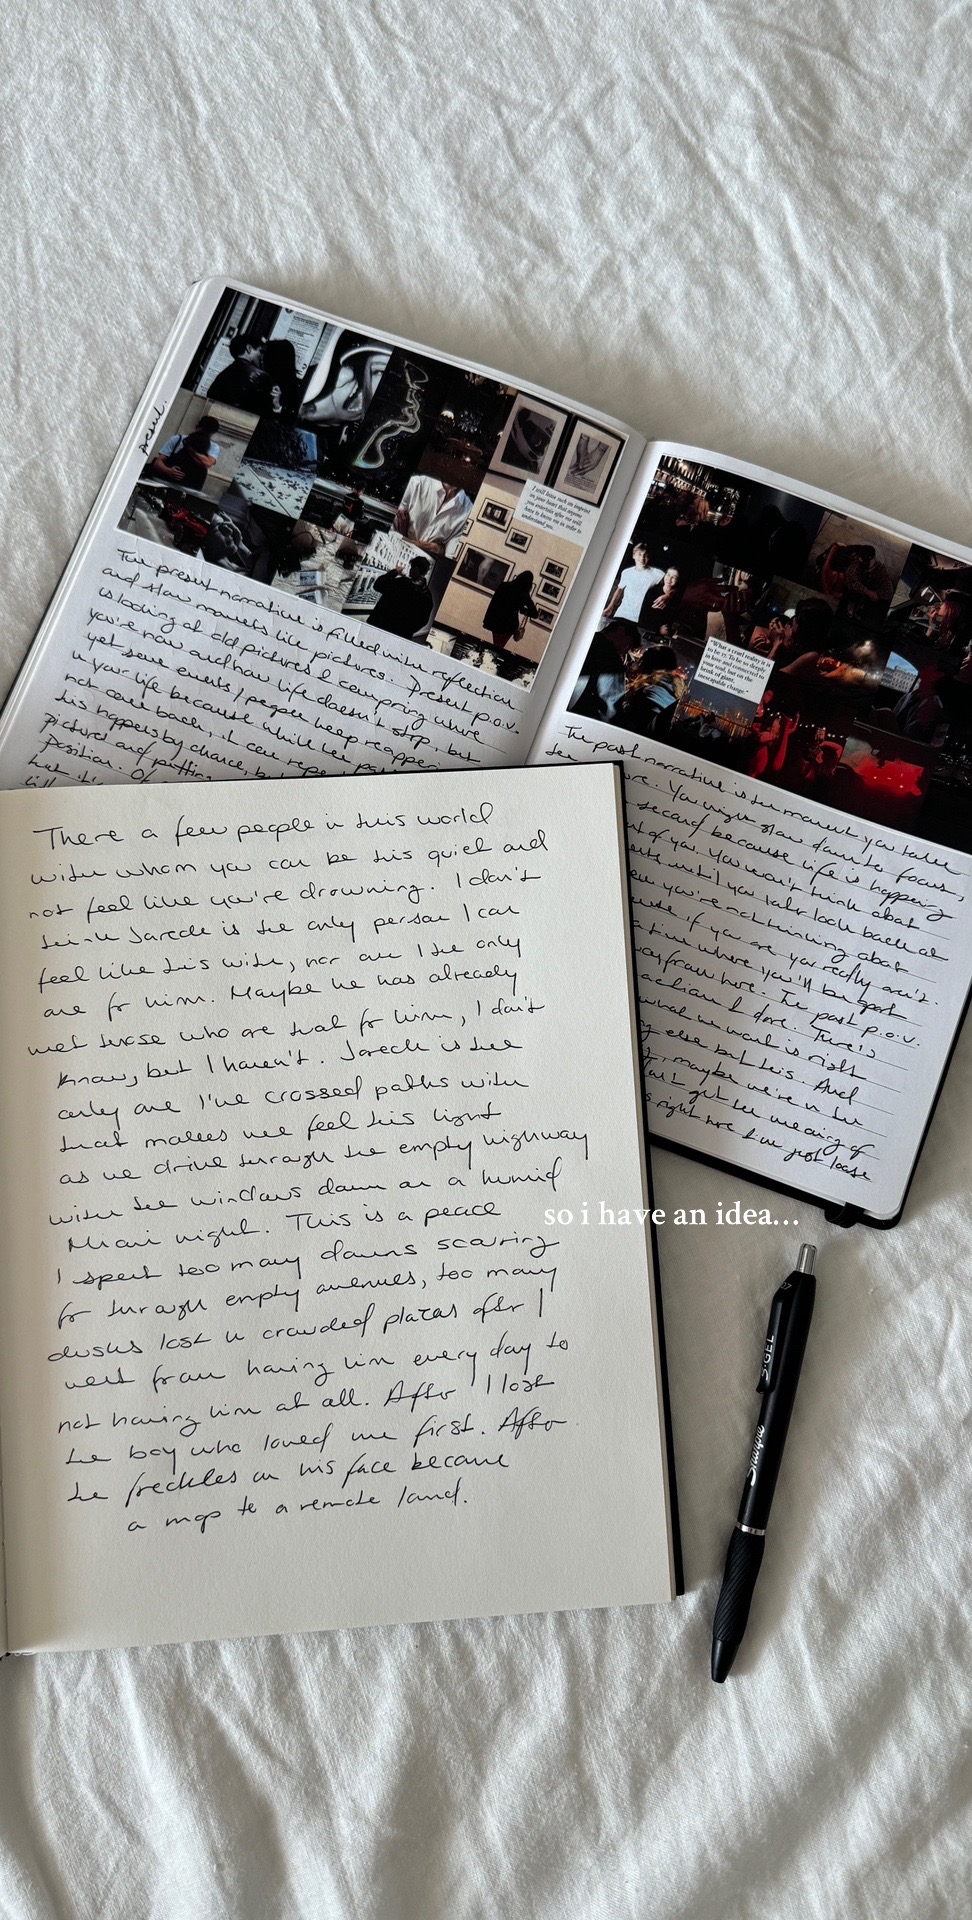 present.
I still leave such an imprint
on your heart that anyone
you entertain after me will
have to know me in order to
understand you.
The present narrative is filled with reflection
and slow moments like pictures. Present p.o.v.
is looking at old pictures & comparing where
you're now and how life doesn't stop, but
yet some events/people keep
in your life because while the
not come back, it can
this happens by chance, but
picture and putting
position. Of
"What a cruel reality it is
to be 17. To be so deeply
in love and connected to
your soul, but on the
brink of giant,
inescapable change."
The past narrative is the moment you take
the picture. You might slow down to focus,
second because life is happening
of you. You won't think about
until you look back at
you're not thinking about
if you are you really aren't.
where you'll be
from here. The past p.o.v.
action & done. There's
what we want is right
else but this. And
maybe we're in the
get the meaning of
right here & we just
There a few people in this world
with whom you can be this quiet and
not feel like you're drowning. I don't
think Jareck is the only person I can
feel like this with, nor am I the only
one for him. Maybe he has already
met those who are that for him, I don't
know, but I haven't. Jareck is the
only one I've crossed paths with
that makes me feel this light
as we drive through the empty highway
with the windows down on a humid
Miami night. This is a peace
I spent too many dawns scouring
for through empty avenues, too many
dusks lost in crowded places after I
went from having him every day to
not having him at all. After I lost
the boy who loved me first. After
the freckles on his face became
a map to a remote land.
so i have an idea...
S·GEL
Sharpie